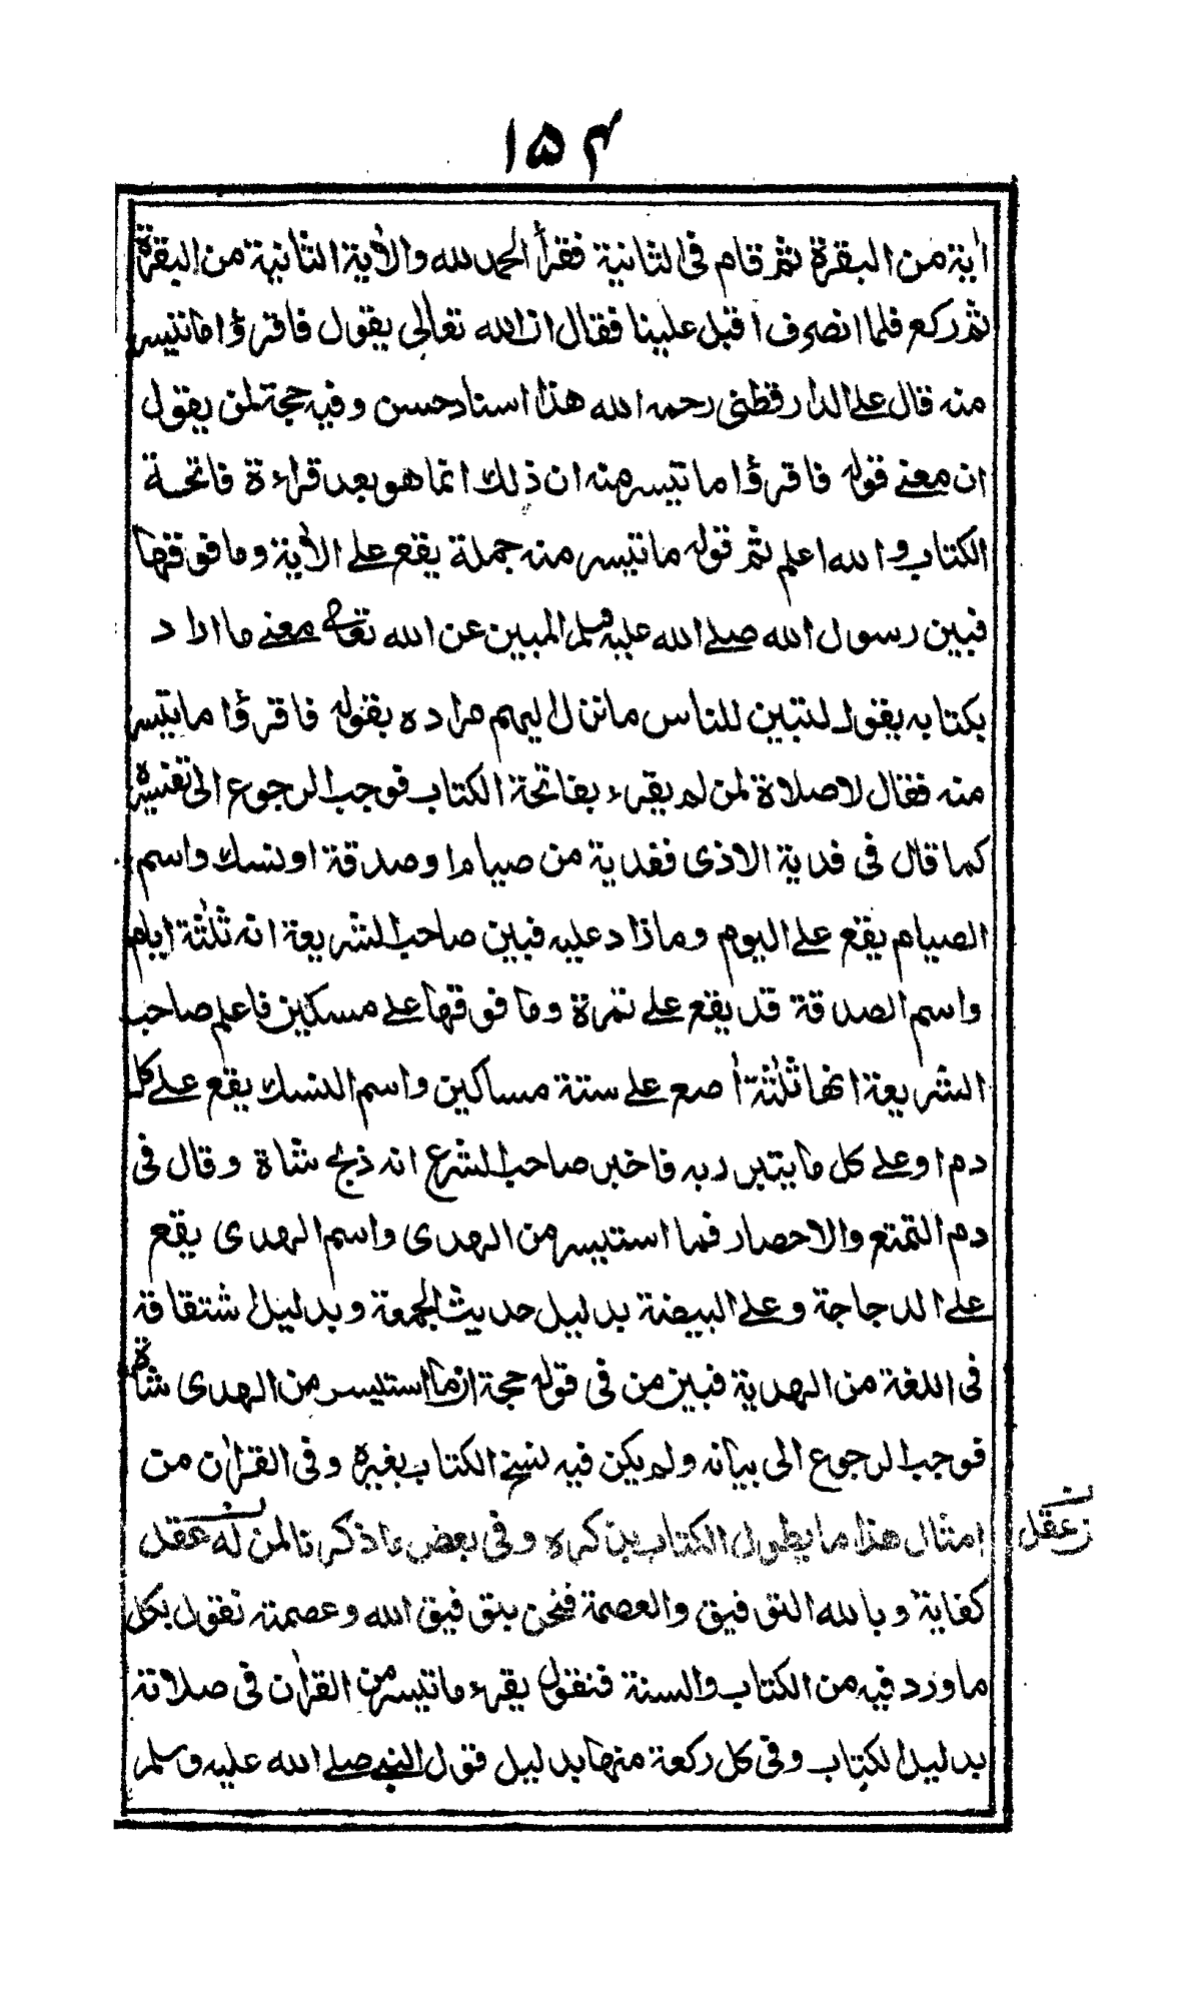 ١٥٤
اٰية من البقرة ثم قام فى الثانية فقرأ الحمد لله والاٰية الثانية من البقرة
ثم ركع فلما انصرف اقبل علينا فقال ان الله تعالى يقول فاقرؤا ما تيسر
منه قال على الدارقطنى رحمه الله هذا اسناد حسن وفيه حجة لمن يقول
ان معنے قوله فاقرؤا ما تيسر منه ان ذلك انما هو بعد قراءة فاتحة
الكتاب والله اعلم ثم قوله ما تيسر منه جملة يقع علے الاٰية وما فوقها
فبين رسول الله صلے الله عليه وسلم المبين عن الله تعالے معنے ما اراد
بكتابه بقول لتبين للناس ما نزل اليهم مراده بقوله فاقرؤا ما تيسر
منه فقال لا صلاة لمن لم يقرء بفاتحة الكتاب فوجب الرجوع الى تفسيره
كما قال فى فدية الاذى ففدية من صيام او صدقة او نسك واسم
الصيام يقع علے اليوم وما زاد عليه فبين صاحب الشريعة انه ثلٰثة ايام
واسم الصدقة قد يقع علے تمرة وما فوقها علے مسكين فاعلم صاحب
الشريعة انها ثلٰثة اٰصع علے ستة مساكين واسم النسك يقع علے كل
دم او علے كل ما يتبرر به فاخبر صاحب الشرع انه ذبح شاة وقال فى
دم التمتع والاحصار فما استيسر من الهدى واسم الهدى يقع
علے الدجاجة وعلے البيضة بدليل حديث الجمعة وبدليل اشتقاقه
فى اللغة من الهدية فبين من فى قوله حجة ان ما استيسر من الهدى شاة
فوجب الرجوع الى بيانه ولم يكن فيه نسخ الكتاب بغيره وفى القراٰن من
امثال هذا ما يطول الكتاب بذكره وفى بعض ما ذكرنا لمن له عقل
ن عقل
كفاية وبالله التوفيق والعصمة فنحن بتوفيق الله وعصمته نقول بكل
ما ورد فيه من الكتاب والسنة فنقول يقرء ما تيسر من القراٰن فى صلاته
بدليل الكتاب وفى كل ركعة منها بدليل قول النبے صلے الله عليه وسلم